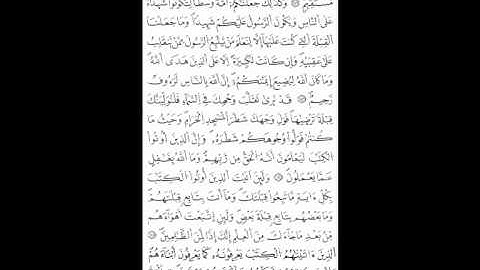 مُّسْتَقِيمٍ ۝ وَكَذَٰلِكَ جَعَلْنَاكُمْ أُمَّةً وَسَطًا لِّتَكُونُوا شُهَدَاءَ
عَلَى النَّاسِ وَيَكُونَ الرَّسُولُ عَلَيْكُمْ شَهِيدًا وَمَا جَعَلْنَا
الْقِبْلَةَ الَّتِي كُنتَ عَلَيْهَا إِلَّا لِنَعْلَمَ مَن يَتَّبِعُ الرَّسُولَ مِمَّن يَنقَلِبُ
عَلَىٰ عَقِبَيْهِ وَإِن كَانَتْ لَكَبِيرَةً إِلَّا عَلَى الَّذِينَ هَدَى اللَّهُ
وَمَا كَانَ اللَّهُ لِيُضِيعَ إِيمَانَكُمْ إِنَّ اللَّهَ بِالنَّاسِ لَرَءُوفٌ
رَّحِيمٌ ۝ قَدْ نَرَىٰ تَقَلُّبَ وَجْهِكَ فِي السَّمَاءِ فَلَنُوَلِّيَنَّكَ
قِبْلَةً تَرْضَاهَا فَوَلِّ وَجْهَكَ شَطْرَ الْمَسْجِدِ الْحَرَامِ وَحَيْثُ مَا
كُنتُمْ فَوَلُّوا وُجُوهَكُمْ شَطْرَهُ وَإِنَّ الَّذِينَ أُوتُوا
الْكِتَابَ لَيَعْلَمُونَ أَنَّهُ الْحَقُّ مِن رَّبِّهِمْ وَمَا اللَّهُ بِغَافِلٍ
عَمَّا يَعْمَلُونَ ۝ وَلَئِنْ أَتَيْتَ الَّذِينَ أُوتُوا الْكِتَابَ
بِكُلِّ آيَةٍ مَّا تَبِعُوا قِبْلَتَكَ وَمَا أَنتَ بِتَابِعٍ قِبْلَتَهُمْ
وَمَا بَعْضُهُم بِتَابِعٍ قِبْلَةَ بَعْضٍ وَلَئِنِ اتَّبَعْتَ أَهْوَاءَهُم
مِّن بَعْدِ مَا جَاءَكَ مِنَ الْعِلْمِ إِنَّكَ إِذًا لَّمِنَ الظَّالِمِينَ ۝
الَّذِينَ آتَيْنَاهُمُ الْكِتَابَ يَعْرِفُونَهُ كَمَا يَعْرِفُونَ أَبْنَاءَهُمْ